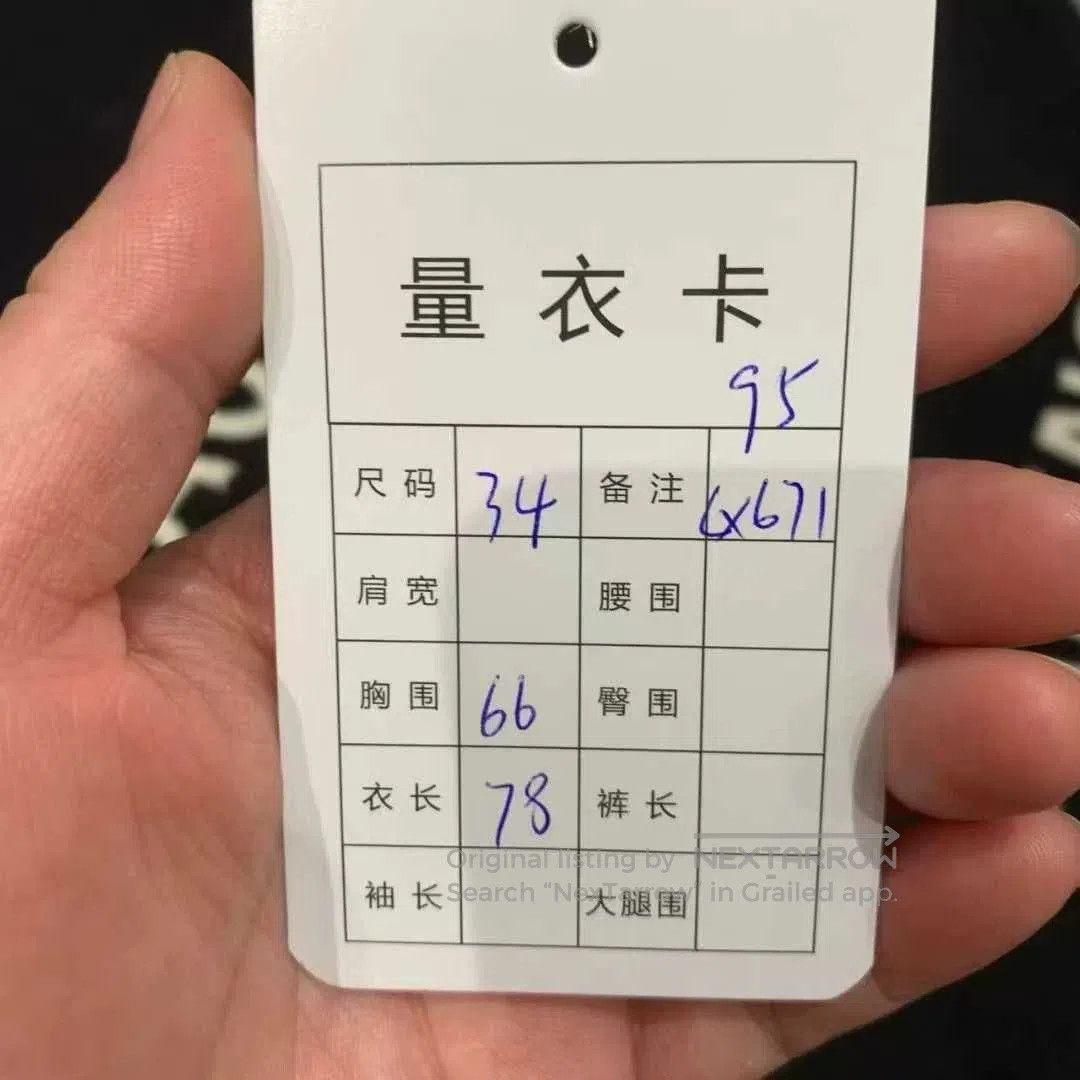 量衣卡
95
尺码 34 备注 GX671
肩宽 腰围
胸围 66 臀围
衣长 78 裤长
袖长 大腿围
Original listing by NEXTARROW
Search “NexTarrow” in Grailed app.